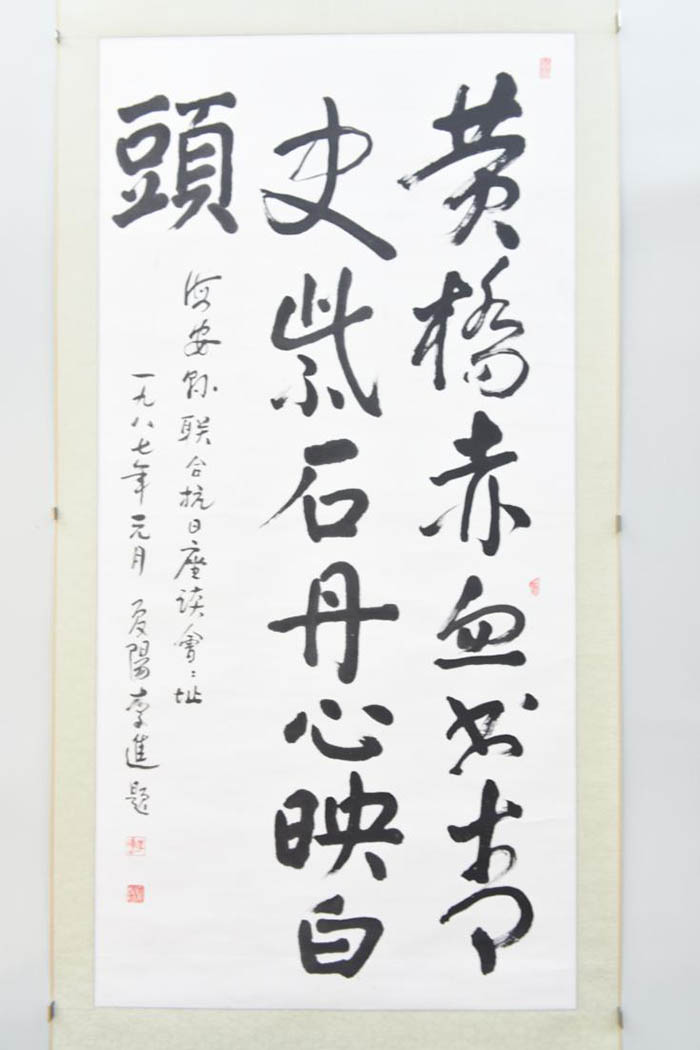 黄橋赤血书青
史紫石丹心映白
頭
海安县联合抗日座谈會會址
一九八七年元月 夏陽李進题